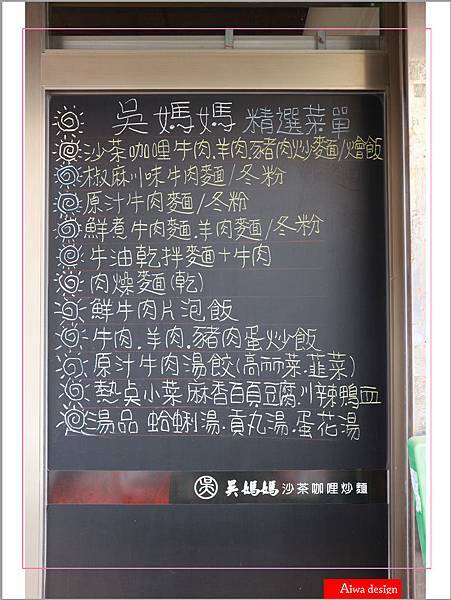 吳媽媽 精選菜單
沙茶咖哩牛肉.羊肉.豬肉炒麵/燴飯
椒麻川味牛肉麵/冬粉
原汁牛肉麵/冬粉
鮮煮牛肉麵.羊肉麵/冬粉
牛油乾拌麵+牛肉
肉燥麵(乾)
鮮牛肉片泡飯
牛肉.羊肉.豬肉蛋炒飯
原汁牛肉湯餃(高麗菜.韭菜)
熱桌小菜 麻香百頁豆腐.川辣鴨血
湯品 蛤蜊湯.貢丸湯.蛋花湯
吳 吳媽媽 沙茶咖哩炒麵
Aiwa design